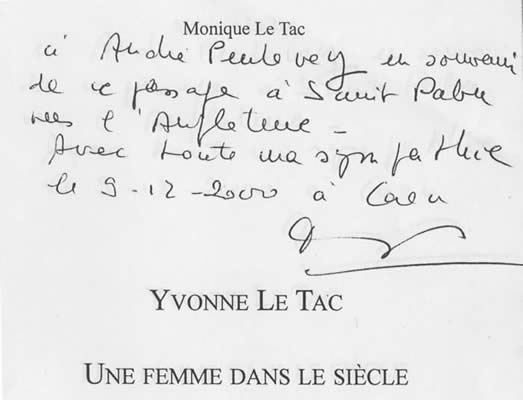 Monique Le Tac
à André Peulevey en souvenir
de ce passage à Saint Pabu
vers l'Angleterre -
Avec toute ma sympathie
le 9-12-2000 à Caen
YVONNE LE TAC
UNE FEMME DANS LE SIÈCLE